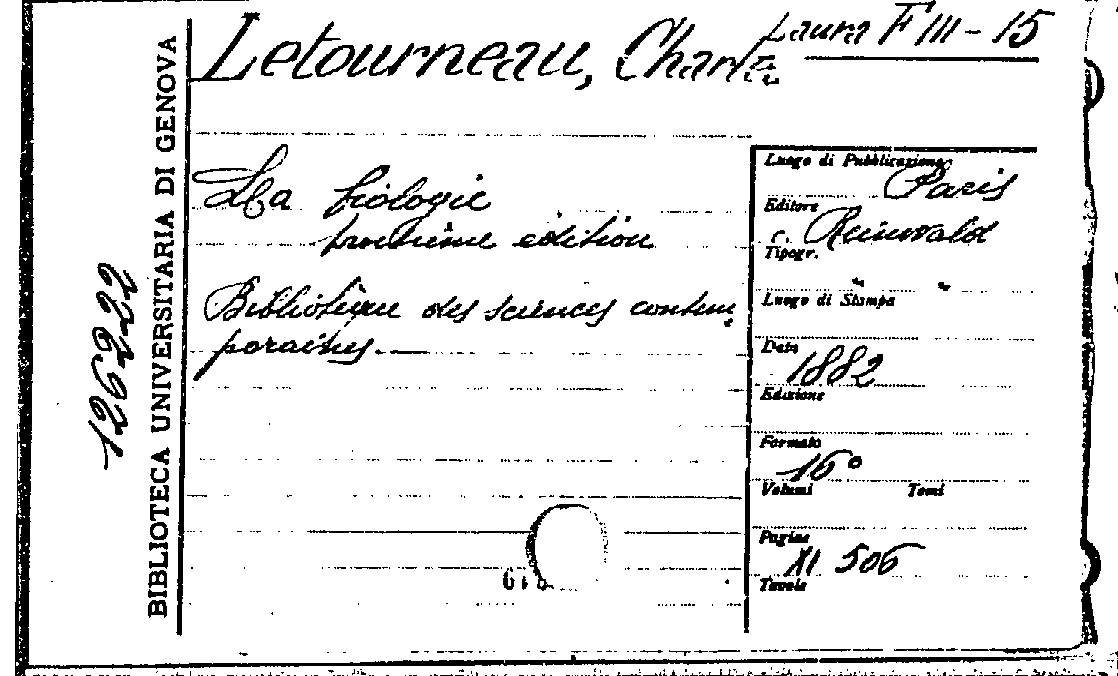 Laura F III - 15
Letourneau, Charles
La biologie
troisième édition
Bibliothèque des sciences contem
poraines.
Luogo di Pubblicazione
Paris
Editore
C. Reinwald
Tipogr.
Luogo di Stampa
Data
1882
Edizione
Formato
16°
Volumi Tomi
Pagine
XI 506
Tavole
BIBLIOTECA UNIVERSITARIA DI GENOVA
126222